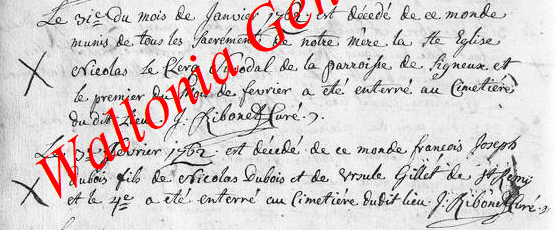 Le 31e du mois de Janvier 1762 est décédé de ce monde
munis de tous les sacrements de notre mère la Ste Eglise
Nicolas Le Clerq de la parroisse de Signeux et
le premier du mois de fevrier a été enterré au Cimetière
du dit lieu. J. Ribonet Curé.
Le fevrier 1762 est décédé de ce monde françois Joseph
Dubois fils de Nicolas Dubois et de Ursule Gillet de St Remy
et le 4e a été enterré au Cimetière dudit lieu J. Ribonet Curé.
Wallonia Gen